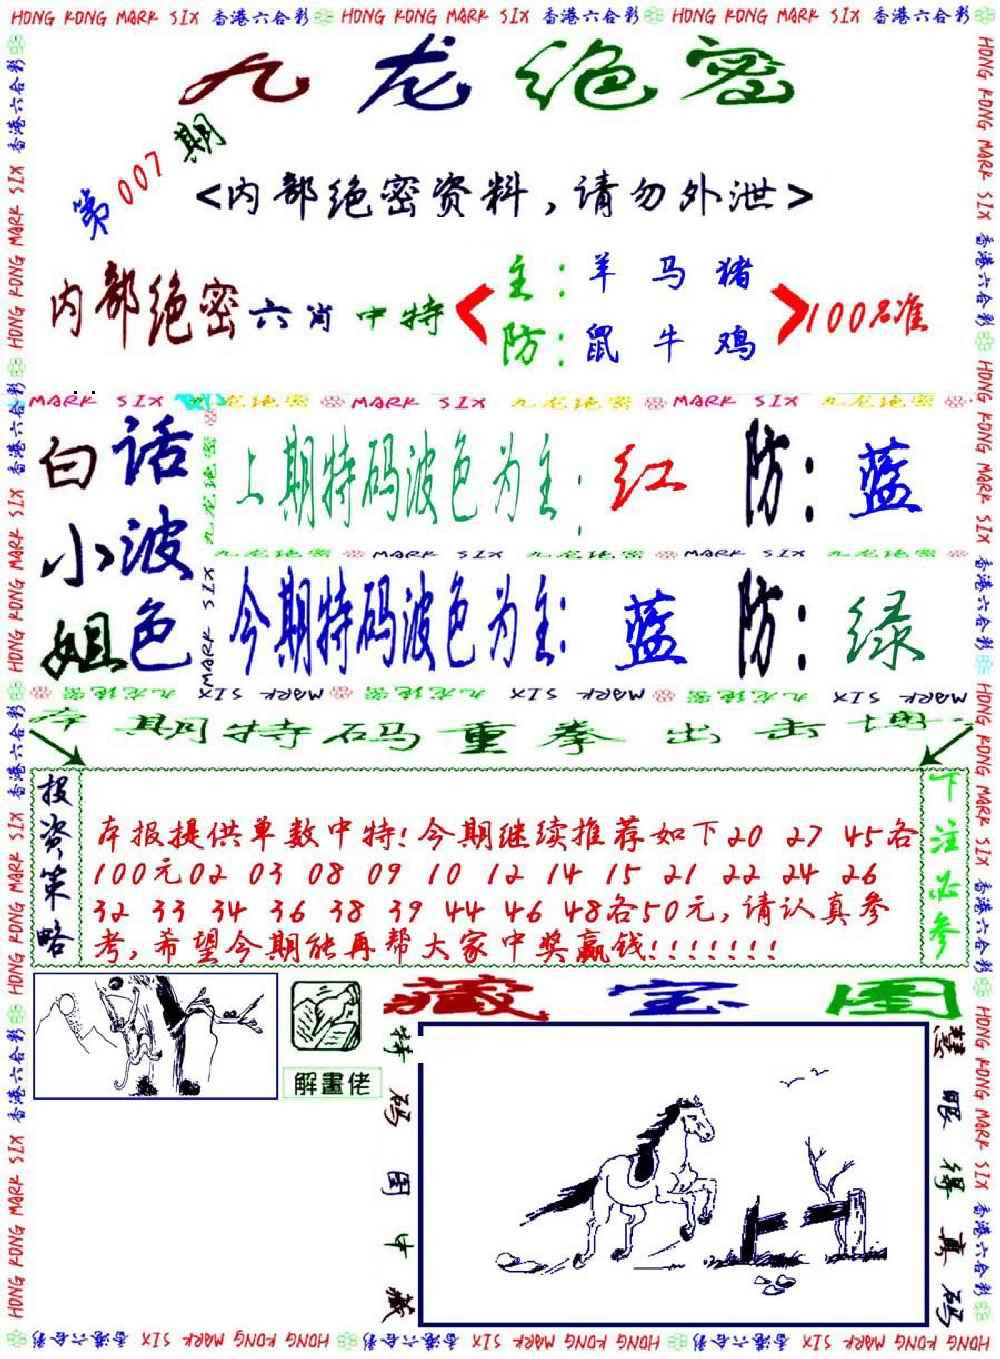 HONG KONG MARK SIX 香港六合彩 HONG KONG MARK SIX 香港六合彩 HONG KONG MARK SIX 香港六合彩
九龙绝密
第007期
<内部绝密资料，请勿外泄>
内部绝密六肖中特
主：羊 马 猪
防：鼠 牛 鸡
100%准
MARK SIX 九龙绝密 MARK SIX 九龙绝密 MARK SIX 九龙绝密
白小姐
话波色
上期特码波色为主：红 防：蓝
九龙绝密 MARK SIX 九龙绝密 MARK SIX 九龙绝密
今期特码波色为主：蓝 防：绿
九龙绝密 MARK SIX 九龙绝密 MARK SIX 九龙绝密 MARK SIX
本期特码重拳出击
投资策略
本报提供单数中特!今期继续推荐如下20 27 45各
100元02 03 08 09 10 12 14 15 21 22 24 26
32 33 34 36 38 39 44 46 48各50元,请认真参
考,希望今期能再帮大家中奖赢钱!!!!!!!
下注必参
解畫佬
藏宝图
特码图中藏
慧眼得真码
HONG KONG MARK SIX 香港六合彩 HONG KONG MARK SIX 香港六合彩 HONG KONG MARK SIX 香港六合彩